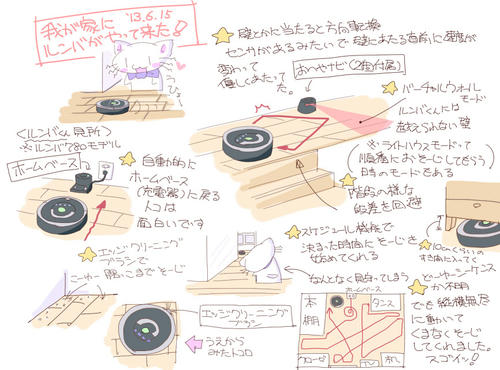 '13.6.15
我が家に
ルンバがやって来た!
壁とかに当たると方向転換
センサがあるみたいで壁にあたる直前に速度が
変わって
優しくあたってた。
お部屋ナビ(2個付属)
バーチャルウォール
モード
ルンバくんには
越えられない壁
※ライトハウスモードって
順番におそうじしてもらう
為のモードもある
階段の様な
段差を回避
<ルンバくん見所>
※ルンバ780モデル
ホームベース
自動的に
ホームベース
(充電器)に戻る
トコは
面白いです
スケジュール機能で
決まった時間にそうじを
始めてくれる
なんとなく見守ってしまう
10cmくらいの
エッジクリーニング
ブラシで
隅っこまでそーじ
エッジクリーニング
ブラシ
うえから
みたトコロ
ホームベース
本棚
タンス
クローゼット
TV
どーゆーシーケンス
か不明
でも縦横無尽
に動いて
くまなくそーじ
してくれました。
スゴイッ!